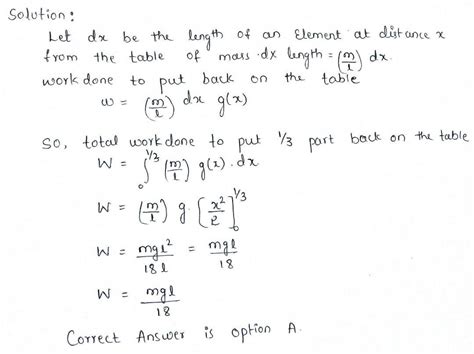 Solution:
Let dx be the length of an Element at distance x
from the table of mass dx length = (m/l) dx.
work done to put back on the table
w = (m/l) dx g(x)
So, total work done to put 1/3 part back on the table
W = ∫₀^(1/3) (m/l) g(x) . dx
W = (m/l) g . [x²/2]₀^(1/3)
W = mgl²/18 l = mgl/18
W = mgl/18
Correct Answer is option A.